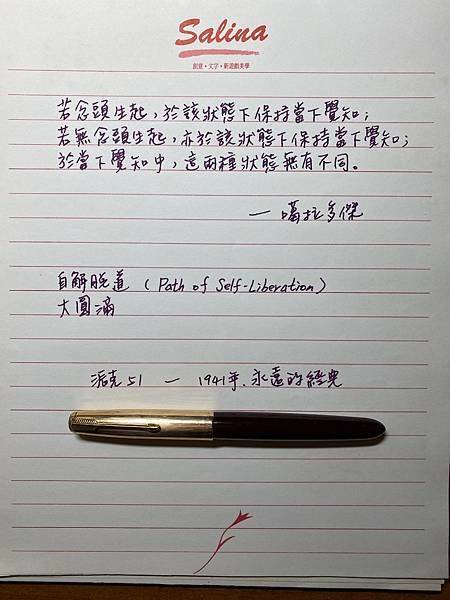 Salina
創意·文字·新遊戲美學
若念頭生起，於該狀態下保持當下覺知；
若無念頭生起，亦於該狀態下保持當下覺知；
於當下覺知中，這兩種狀態無有不同。
— 噶拉多傑
自解脫道（Path of Self-Liberation）
大圓滿
派克51 — 1941年，永遠的經典